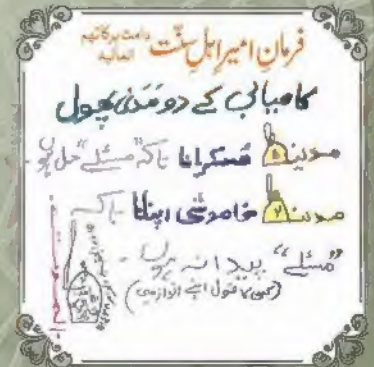 فرمانِ امیرِ اہلِ سنّت دامت برکاتہم العالیہ
کامیابی کے دو مَدَنی پھول
مدینہ ۱ مُسکرانا تاکہ "مسئلے" حل ہوں۔
مدینہ ۲ خاموشی اپنانا تاکہ
"مسئلے" پیدا نہ ہوں۔
(کسی کا قول اپنے انداز میں)